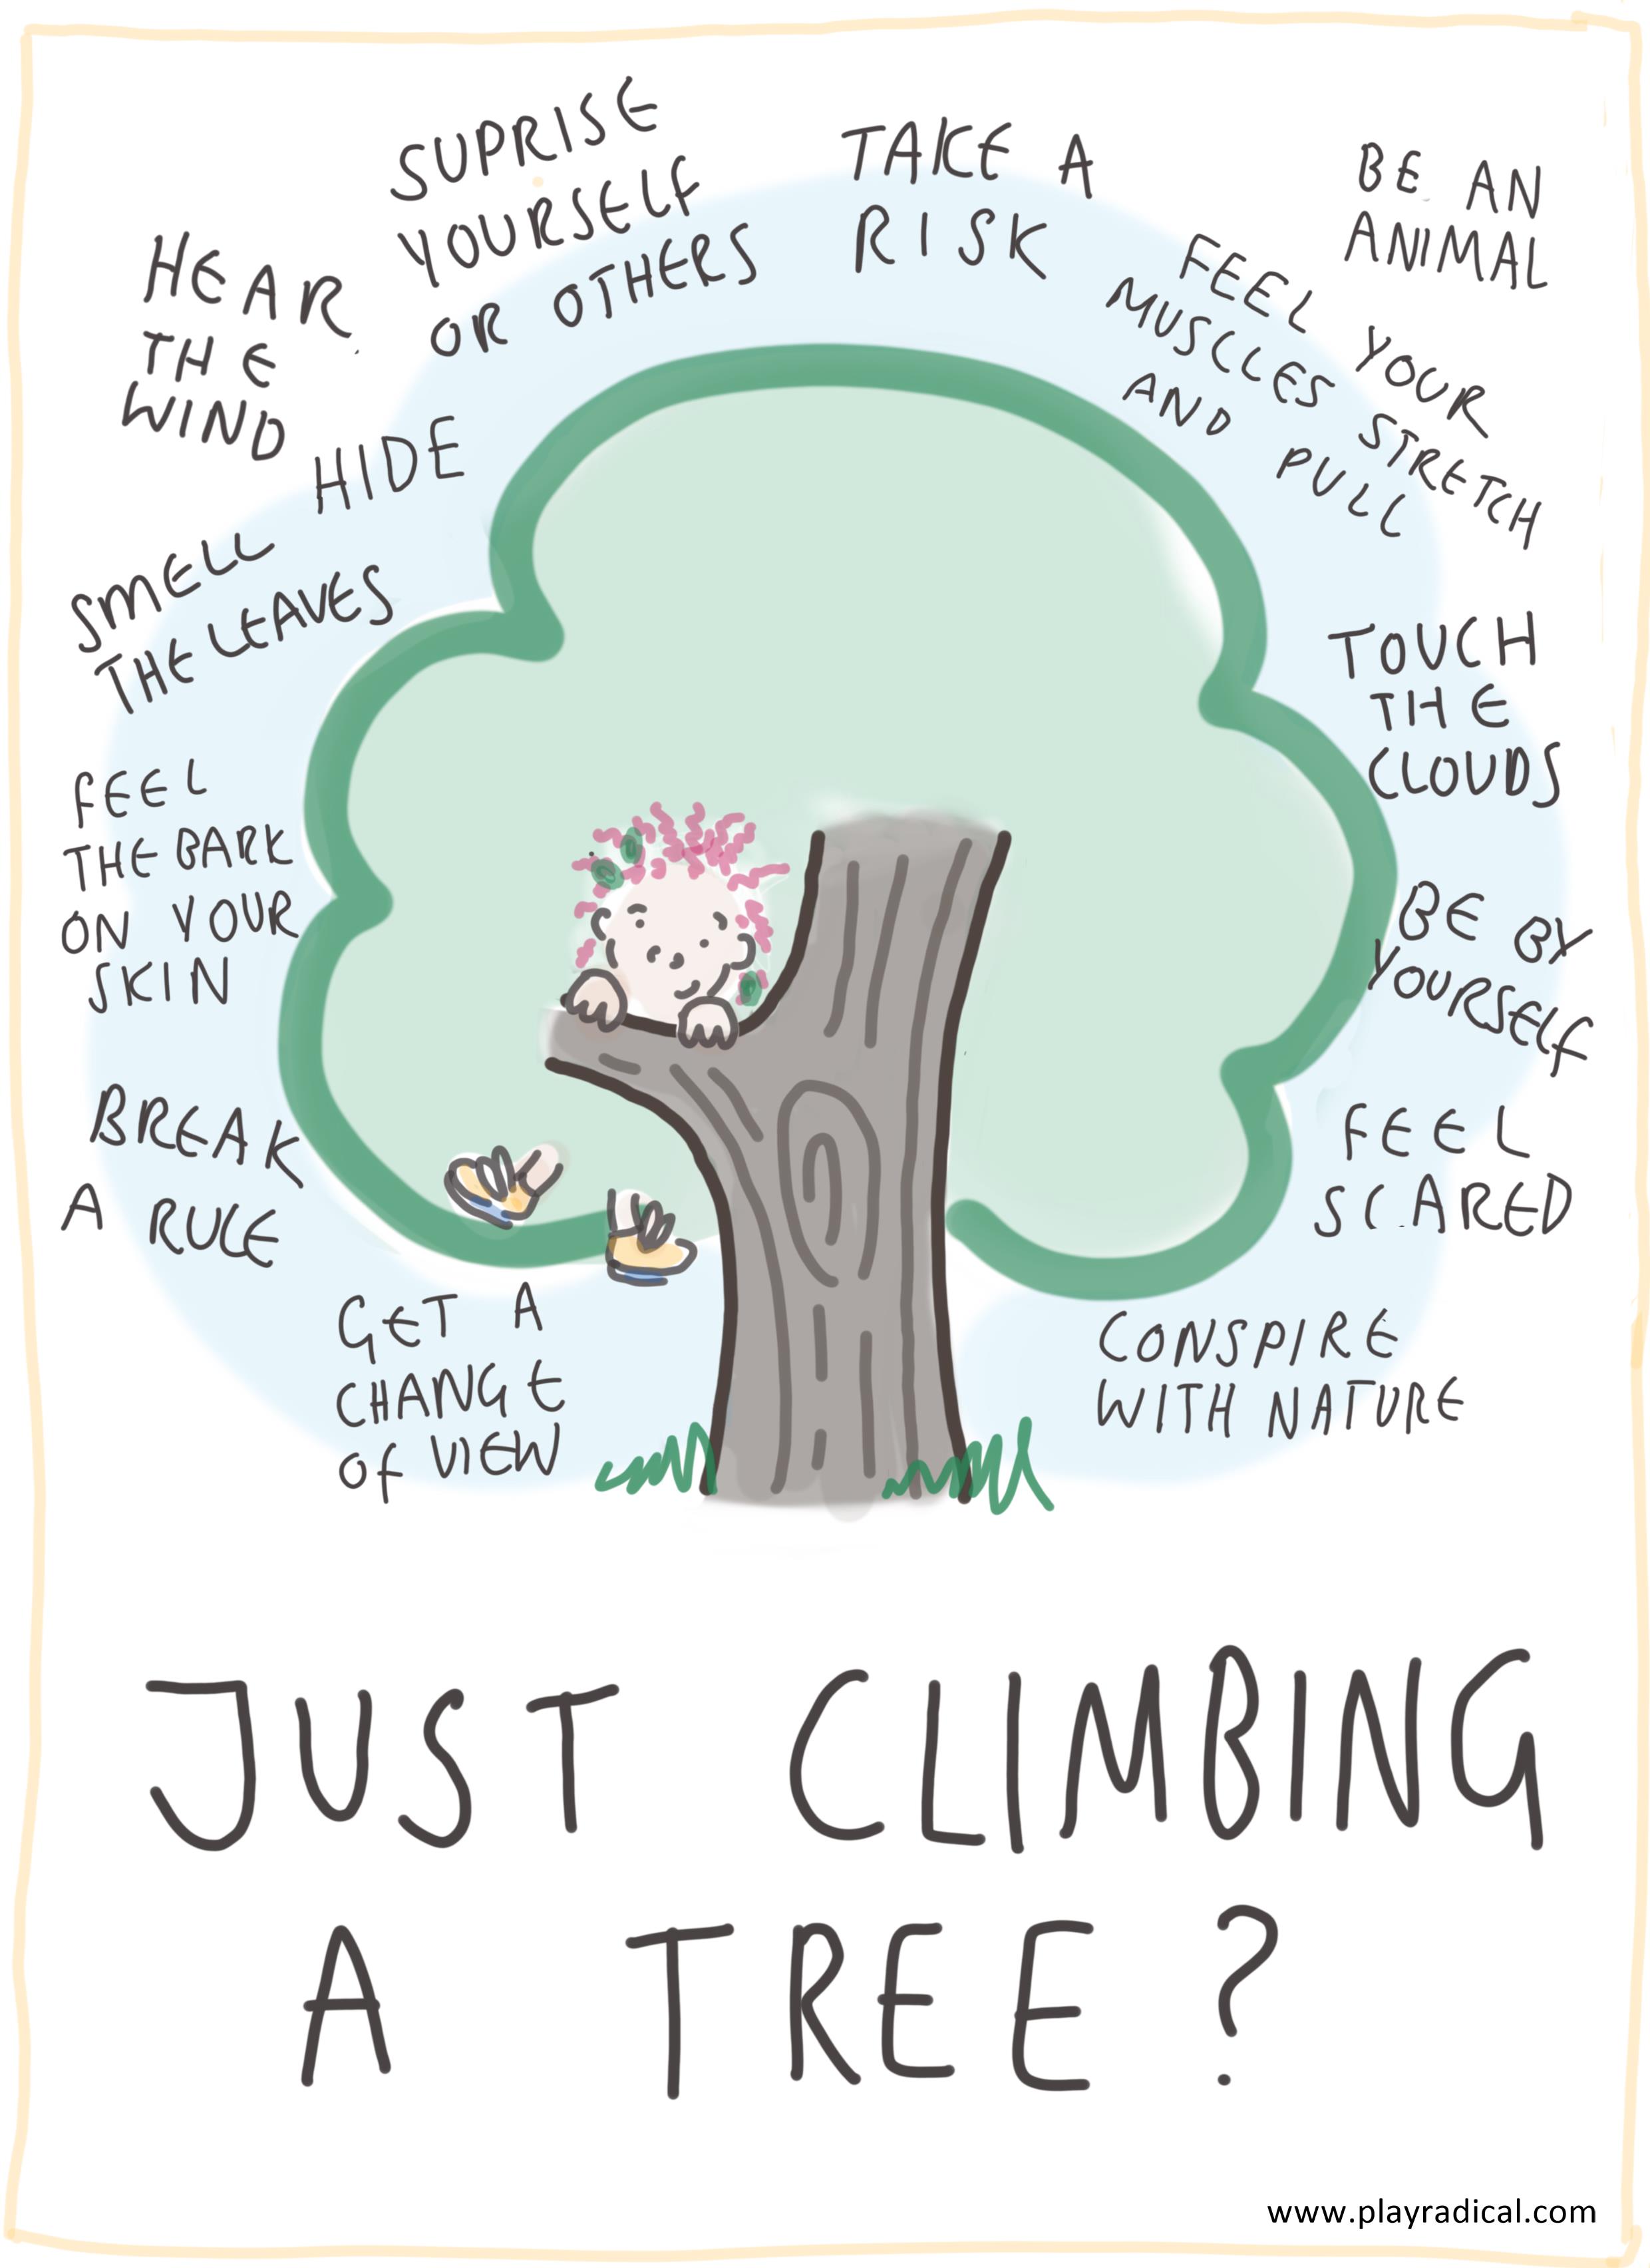 SUPRISE
YOURSELF
OR OTHERS
TAKE A
RISK
BE AN
ANIMAL
FEEL YOUR
MUSCLES STRETCH
AND PULL
HEAR
THE
WIND
HIDE
SMELL
THE LEAVES
TOUCH
THE
CLOUDS
FEEL
THE BARK
ON YOUR
SKIN
BE BY
YOURSELF
BREAK
A RULE
FEEL
SCARED
GET A
CHANGE
OF VIEW
CONSPIRE
WITH NATURE
JUST CLIMBING
A TREE?
www.playradical.com